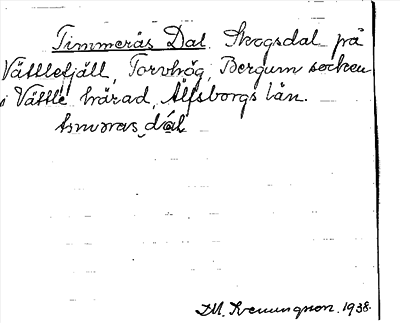 Timmerås Dal. Skogsdal på
Vättlefjäll, Torvhög, Bergum socken
i Vättle härad, Älfsborgs län.
dal
1938.